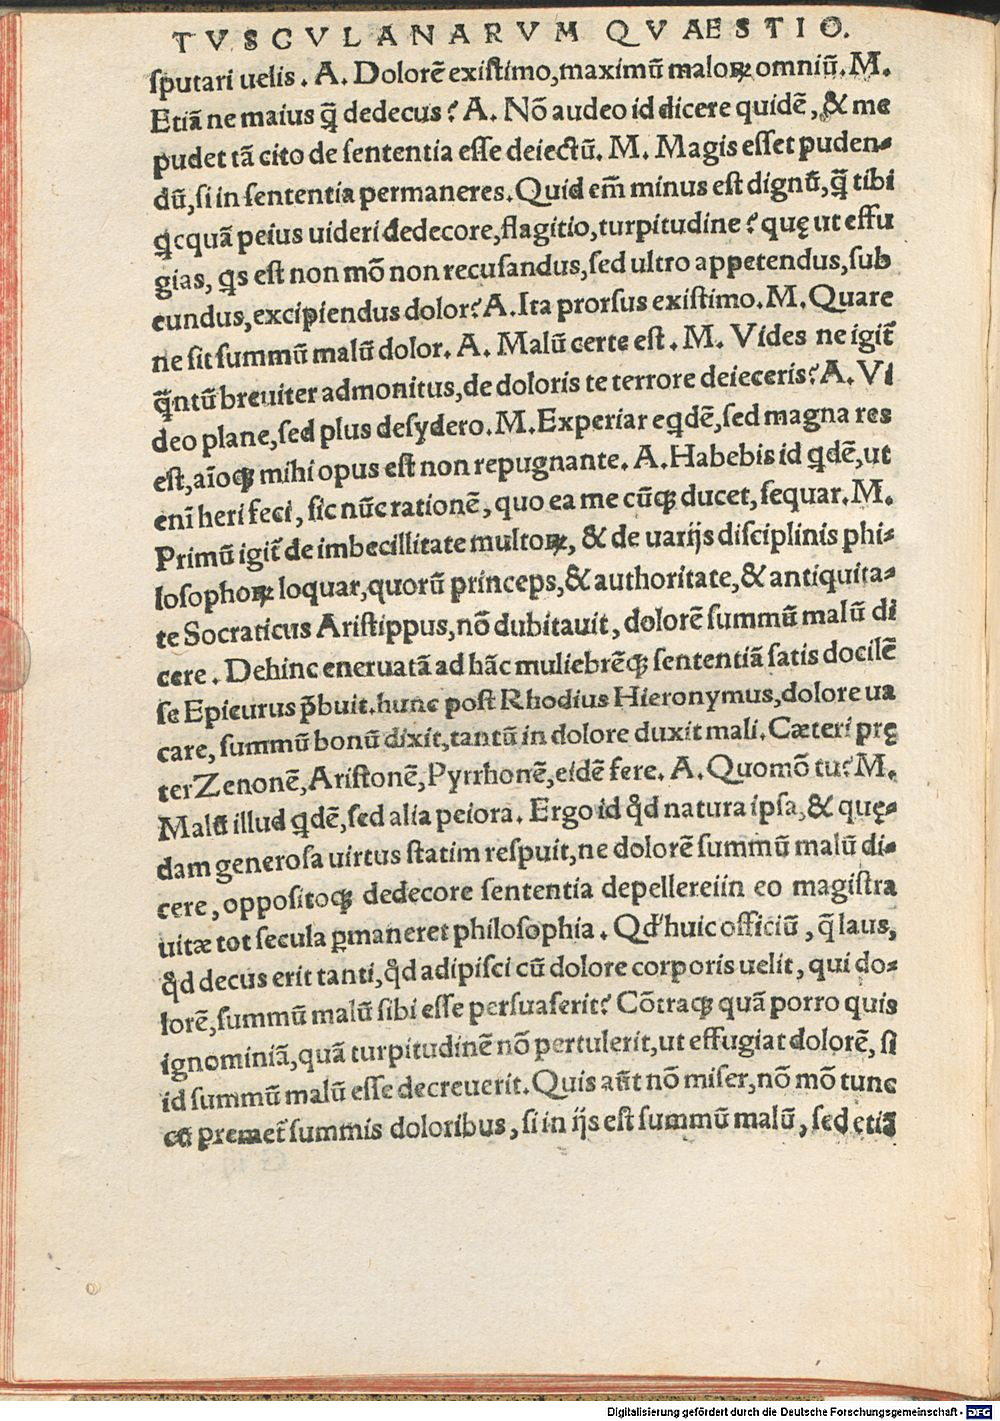 TVSCVLANARVM QVAESTIO.
ſputari uelis. A. Dolorē exiſtimo, maximū maloꝝ omniū. M.
Etiā ne maius q̃ dedecus? A. Nō audeo id dicere quidē, & me
pudet tā cito de ſententia eſſe deiectū. M. Magis eſſet puden-
dū, ſi in ſententia permaneres. Quid em̄ minus eſt dignū, q̃ tibi
qͥcquā peius uideri dedecore, flagitio, turpitudine? quę ut effu
gias, qͥs eſt non mō non recuſandus, ſed ultro appetendus, ſub
eundus, excipiendus dolor? A. Ita prorſus exiſtimo. M. Quare
ne ſit ſummū malū dolor. A. Malū certe eſt. M. Vides ne igit̃
q̃ntū breuiter admonitus, de doloris te terrore deieceris? A. Vi
deo plane, ſed plus deſydero. M. Experiar eqͥdē, ſed magna res
eſt, aīoq; mihi opus eſt non repugnante. A. Habebis id qͥdē, ut
enī heri feci, ſic nūc rationē, quo ea me cūq; ducet, ſequar. M.
Primū igit̃ de imbecillitate multoꝝ, & de uarijs diſciplinis phi-
loſophoꝝ loquar, quorū princeps, & authoritate, & antiquita-
te Socraticus Ariſtippus, nō dubitauit, dolorē ſummū malū di
cere. Dehinc eneruatā ad hāc muliebrēq; ſententiā ſatis docilē
ſe Epicurus p̄buit. hunc poſt Rhodius Hieronymus, dolore ua
care, ſummū bonū dixit, tantū in dolore duxit mali. Cæteri prę
ter Zenonē, Ariſtonē, Pyrrhonē, eidē fere. A. Quomō tu? M.
Malū illud qͥdē, ſed alia peiora. Ergo id qd̓ natura ipſa, & quę-
dam generoſa uirtus ſtatim reſpuit, ne dolorē ſummū malū di-
cere, oppoſitoq; dedecore ſententia depellereiin eo magiſtra
uitæ tot ſecula ꝑmaneret philoſophia. Qd̓ huic officiū, q̃ laus,
qd̓ decus erit tanti, qd̓ adipiſci cū dolore corporis uelit, qui do-
lorē, ſummū malū ſibi eſſe perſuaſerit? Cōtraq; quā porro quis
ignominiā, quā turpitudinē nō pertulerit, ut effugiat dolorē, ſi
id ſummū malū eſſe decreuerit. Quis aūt nō miſer, nō mō tunc
cū premet̃ ſummis doloribus, ſi in ijs eſt ſummū malū, ſed etiā
Digitalisierung gefördert durch die Deutsche Forschungsgemeinschaft - DFG